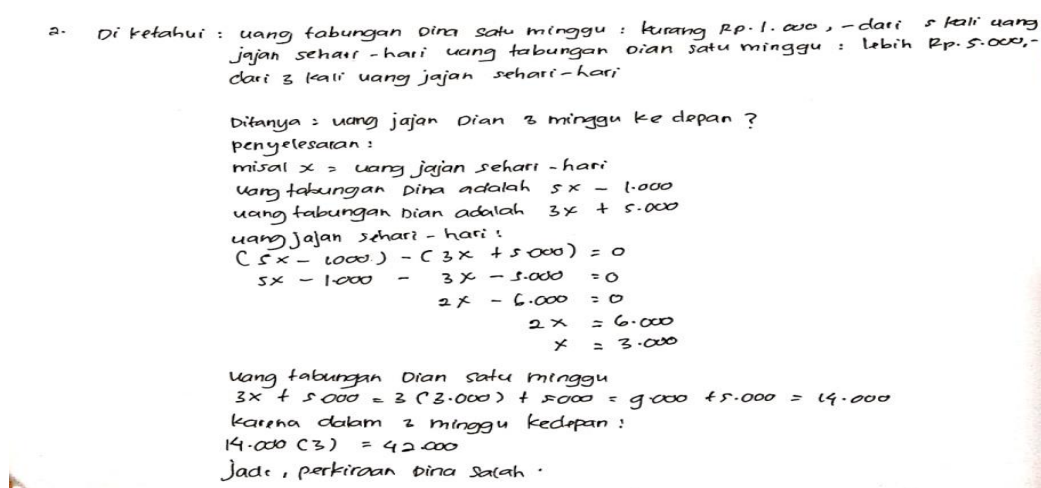 2. Diketahui : uang tabungan Dina satu minggu : kurang Rp. 1.000,- dari 5 kali uang
jajan sehari-hari uang tabungan Dian satu minggu : lebih Rp. 5.000,-
dari 3 kali uang jajan sehari-hari
Ditanya : uang jajan Dian 3 minggu ke depan ?
penyelesaian :
misal x = uang jajan sehari-hari
uang tabungan Dina adalah 5x - 1.000
uang tabungan Dian adalah 3x + 5.000
uang jajan sehari-hari :
(5x - 1000) - (3x + 5000) = 0
5x - 1.000 - 3x - 5.000 = 0
2x - 6.000 = 0
2x = 6.000
x = 3.000
uang tabungan Dian satu minggu
3x + 5000 = 3 (3.000) + 5000 = 9000 + 5.000 = 14.000
karena dalam 3 minggu kedepan :
14.000 (3) = 42.000
Jadi, perkiraan Dina salah.